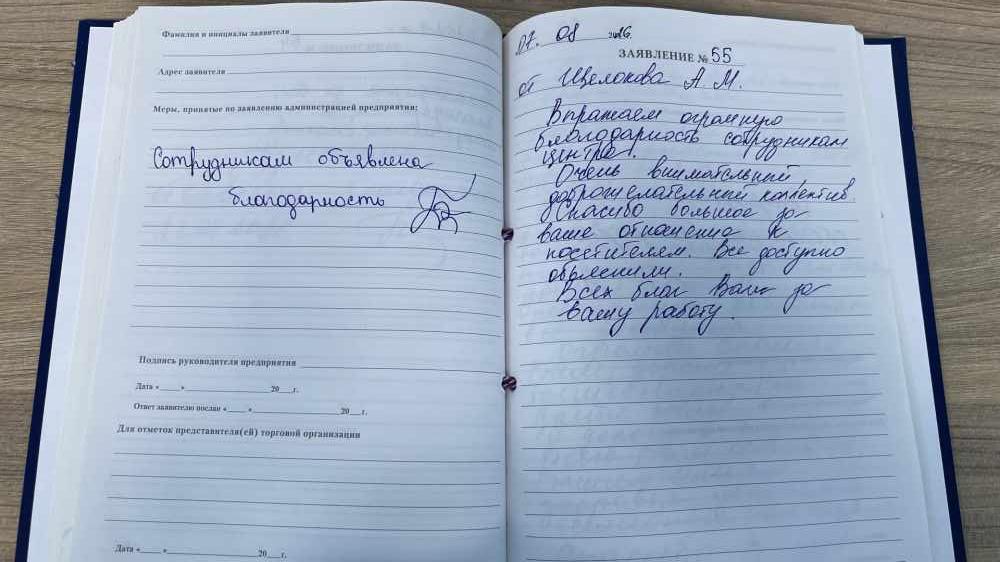 Фамилия и инициалы заявителя
Адрес заявителя
Меры, принятые по заявлению администрацией предприятия:
Сотрудникам объявлена
благодарность
Подпись руководителя предприятия
Дата «____» ____________ 20___г.
Ответ заявителю послан «____» ____________ 20___г.
Для отметок представителя(ей) торговой организации
Дата «____» ____________ 20___г.
07. 08
ЗАЯВЛЕНИЕ № 55
от Щелокова А. М.
Выражаем огромную
благодарность сотрудникам
центра.
Очень внимательный,
доброжелательный коллектив.
Спасибо большое за
ваше отношение к
посетителям. Все доступно
объяснили.
Всех благ Вам за
вашу работу.